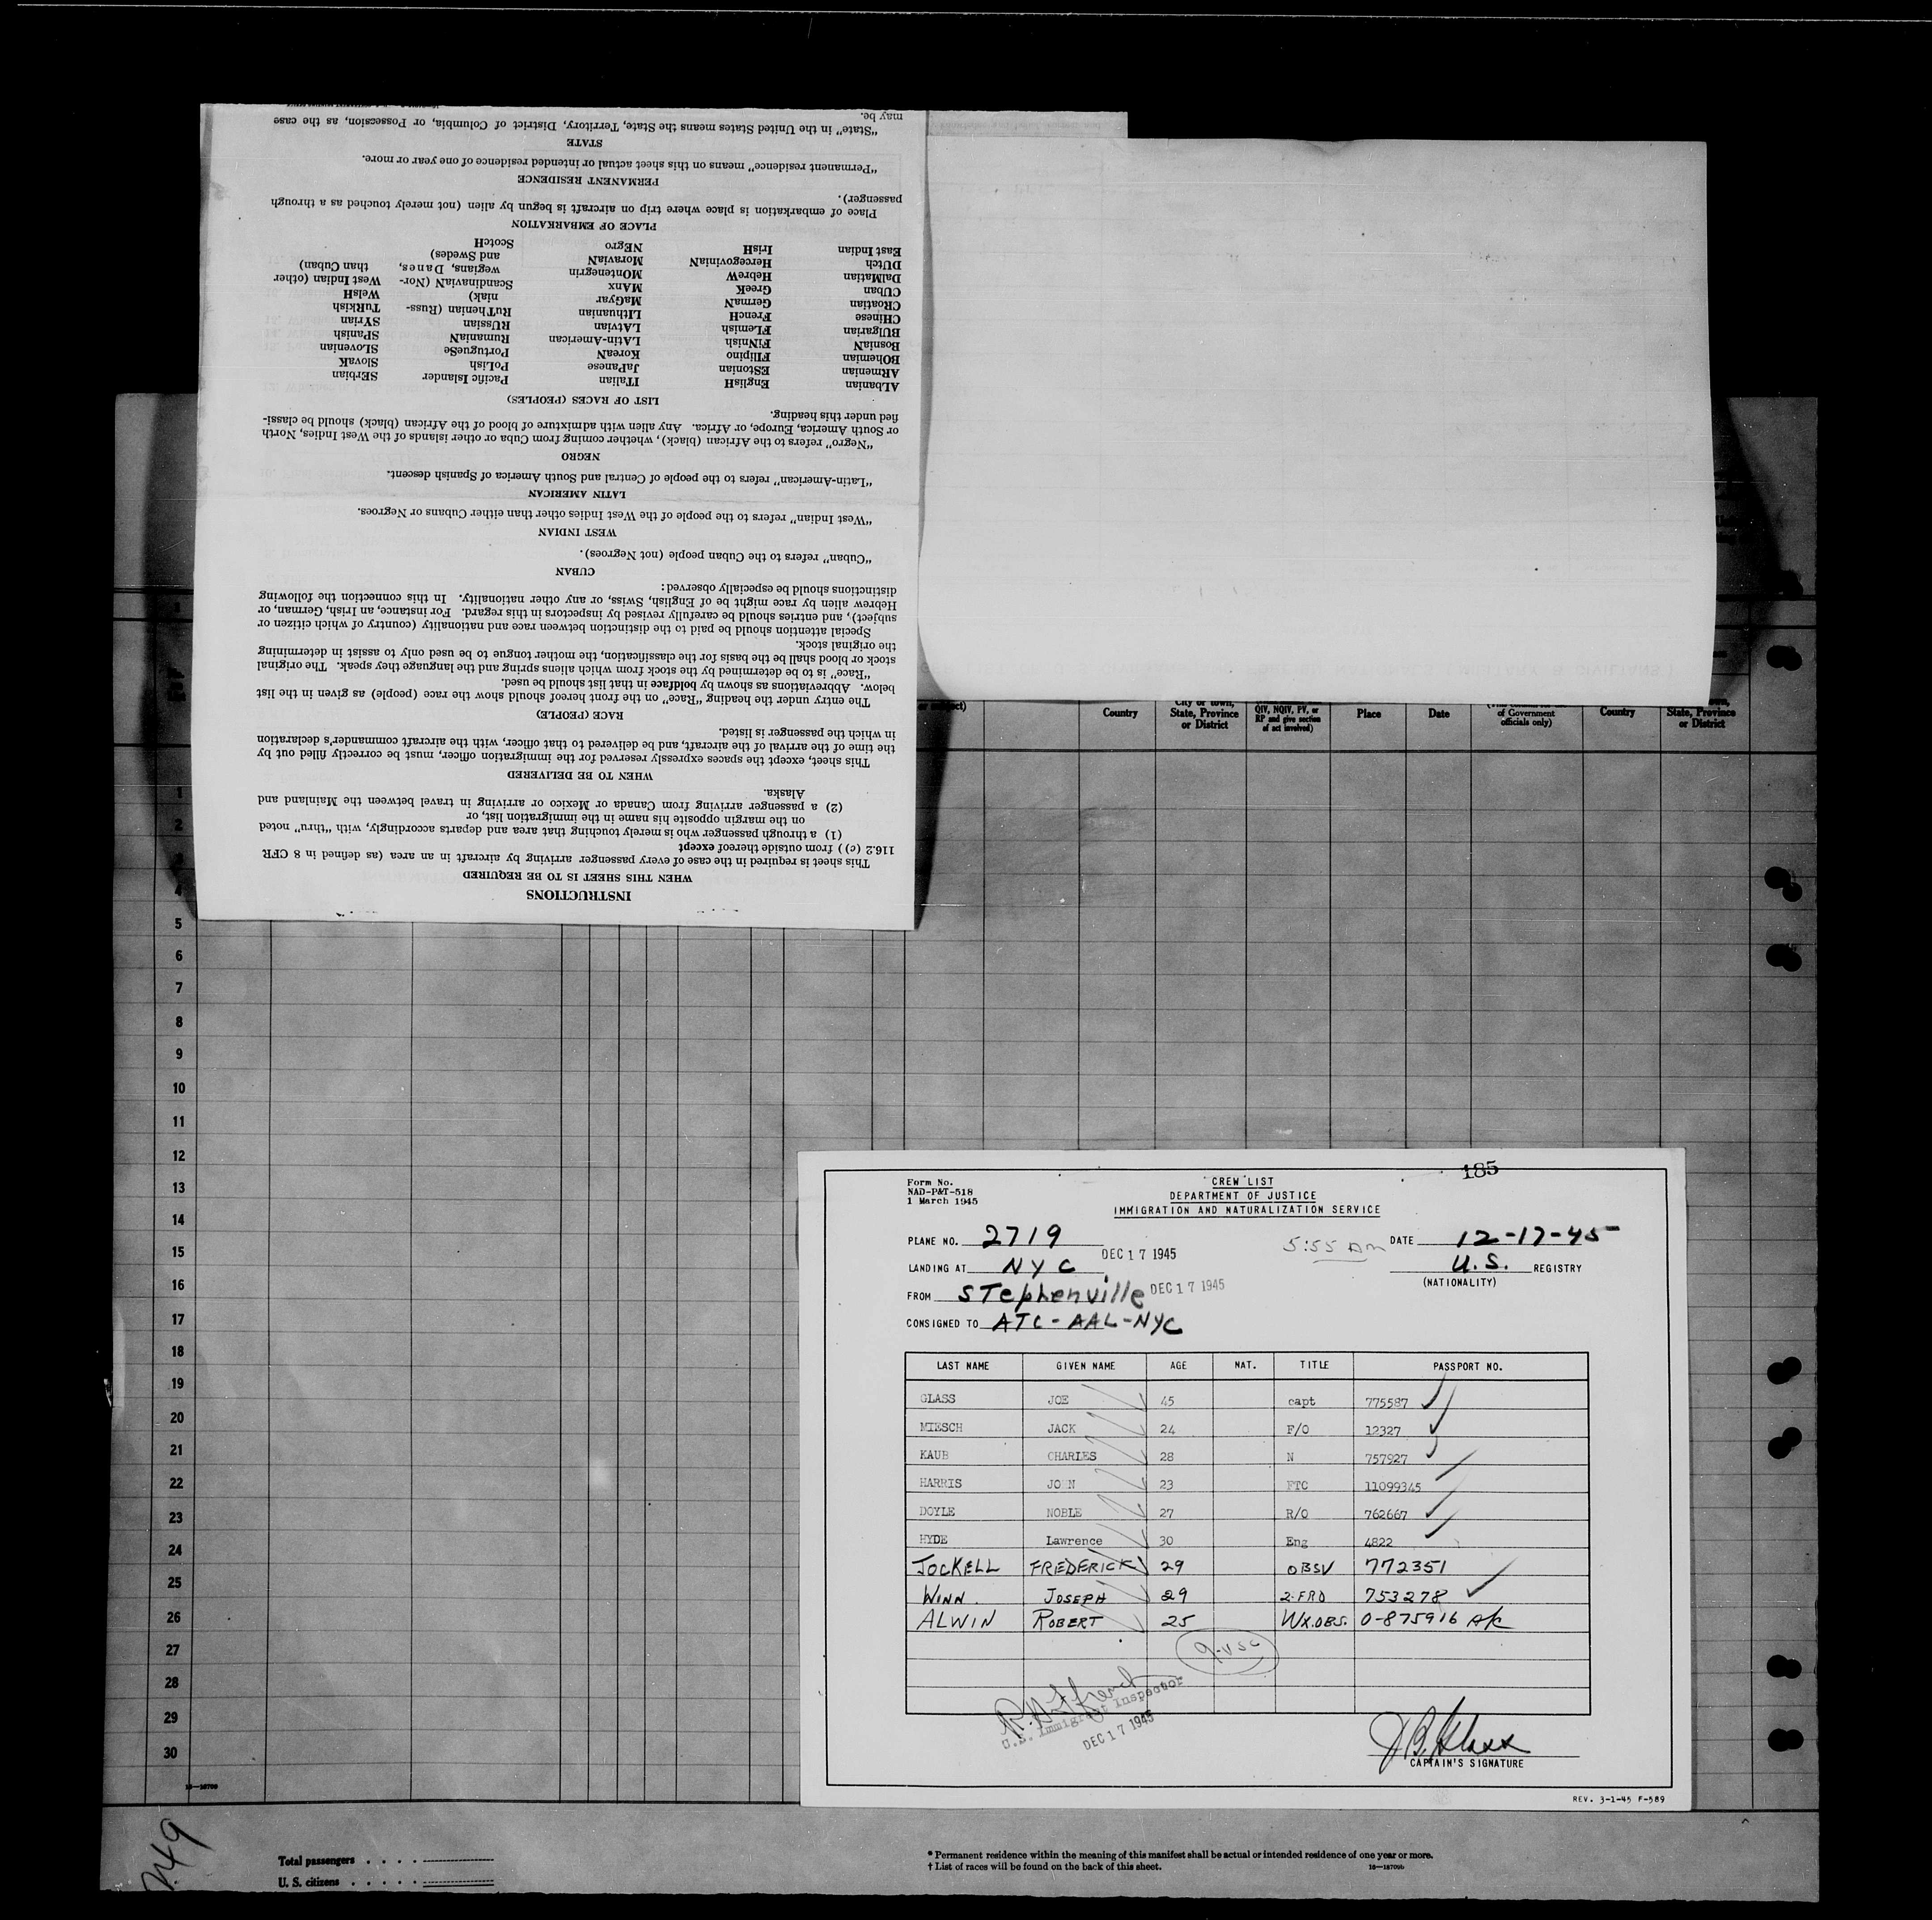 INSTRUCTIONS
WHEN THIS SHEET IS TO BE REQUIRED
This sheet is required in the case of every passenger arriving by aircraft in an area (as defined in 8 CFR
116.2 (c)) from outside thereof except
(1) a through passenger who is merely touching that area and departs accordingly, with "thru" noted
on the margin opposite his name in the immigration list, or
(2) a passenger arriving from Canada or Mexico or arriving in travel between the Mainland and
Alaska.
WHEN TO BE DELIVERED
This sheet, except the spaces expressly reserved for the immigration officer, must be correctly filled out by
the time of the arrival of the aircraft, and be delivered to that officer, with the aircraft commander's declaration
in which the passenger is listed.
RACE (PEOPLE)
The entry under the heading "Race" on the front hereof should show the race (people) as given in the list
below. Abbreviations as shown by boldface in that list should be used.
"Race" is to be determined by the stock from which aliens spring and the language they speak. The original
stock or blood shall be the basis for the classification, the mother tongue to be used only to assist in determining
the original stock.
Special attention should be paid to the distinction between race and nationality (country of which citizen or
subject), and entries should be carefully revised by inspectors in this regard. For instance, an Irish, German, or
Hebrew alien by race might be of English, Swiss, or any other nationality. In this connection the following
distinctions should be especially observed:
CUBAN
"Cuban" refers to the Cuban people (not Negroes).
WEST INDIAN
"West Indian" refers to the people of the West Indies other than either Cubans or Negroes.
LATIN AMERICAN
"Latin-American" refers to the people of Central and South America of Spanish descent.
NEGRO
"Negro" refers to the African (black), whether coming from Cuba or other islands of the West Indies, North
or South America, Europe, or Africa. Any alien with admixture of blood of the African (black) should be classi-
fied under this heading.
LIST OF RACES (PEOPLES)
ALbanian EnglisH ITalian Pacific Islander SErbian
ARmenian EStonian JaPanese PoLish SlovaK
BOhemian FIlipino KoreaN PortugueSe SLOvenian
BosniaN FiNnish LAtin-American RumaniaN SPanish
BUlgarian FLemish LAtVian RUssian SYrian
CHinese FrencH LIthuanian RuThenian (Russ- TuRkish
CRoatian GermaN MaGyar niak) WelsH
CUban GreeK MAnx ScandinaviaN (Nor- West Indian (other
DalMatian HebreW MOntenegrin wegians, Danes, than Cuban)
DUtch HercegoviniaN MoraviaN and Swedes)
East Indian IrisH NEgro ScotcH
PLACE OF EMBARKATION
Place of embarkation is place where trip on aircraft is begun by alien (not merely touched as a through
passenger).
PERMANENT RESIDENCE
"Permanent residence" means on this sheet actual or intended residence of one year or more.
STATE
"State" in the United States means the State, Territory, District of Columbia, or Possession, as the case
may be.
Country City or town, State, Province or District QIV, NQIV, PV, or RP and give section of act involved) Place Date of Government officials only) Country State, Province or District
1
1
2
4
5
6
7
8
9
10
11
12
13
14
15
16
17
18
19
20
21
22
23
24
25
26
27
28
29
30
185
Form No.
NAD-P&T-518
1 March 1945
CREW LIST
DEPARTMENT OF JUSTICE
IMMIGRATION AND NATURALIZATION SERVICE
PLANE NO. 2719 5:55 AM DATE 12-17-45
LANDING AT NYC DEC 17 1945 U.S. REGISTRY
(NATIONALITY)
FROM STephenville DEC 17 1945
CONSIGNED TO ATC-AAL-NYC
LAST NAME GIVEN NAME AGE NAT. TITLE PASSPORT NO.
GLASS JOE 45 capt 775587
MIESCH JACK 24 F/O 12327
KAUB CHARLES 28 N 757927
HARRIS JOHN 23 FTC 11099345
DOYLE NOBLE 27 R/O 762667
HYDE Lawrence 30 Eng 4822
JOCKELL FREDERICK 29 OBSV 772351
WINN. JOSEPH 29 2-FRO 753278
ALWIN ROBERT 25 WX.OBS. 0-875916
9-USC
U.S. Immigrant Inspector
DEC 17 1945
J B Glass
CAPTAIN'S SIGNATURE
REV. 3-1-45 F-589
Total passengers
U. S. citizens
* Permanent residence within the meaning of this manifest shall be actual or intended residence of one year or more.
† List of races will be found on the back of this sheet. 16—18709b